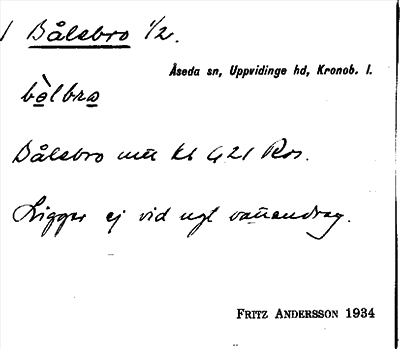 Bålebro 1/2.
Åseda sn, Uppvidinge hd, Kronob. l.
bòlbrω
Bålebro utt kt 421 Ros.
Ligger ej vid ngt vattendrag.
FRITZ ANDERSSON 1934